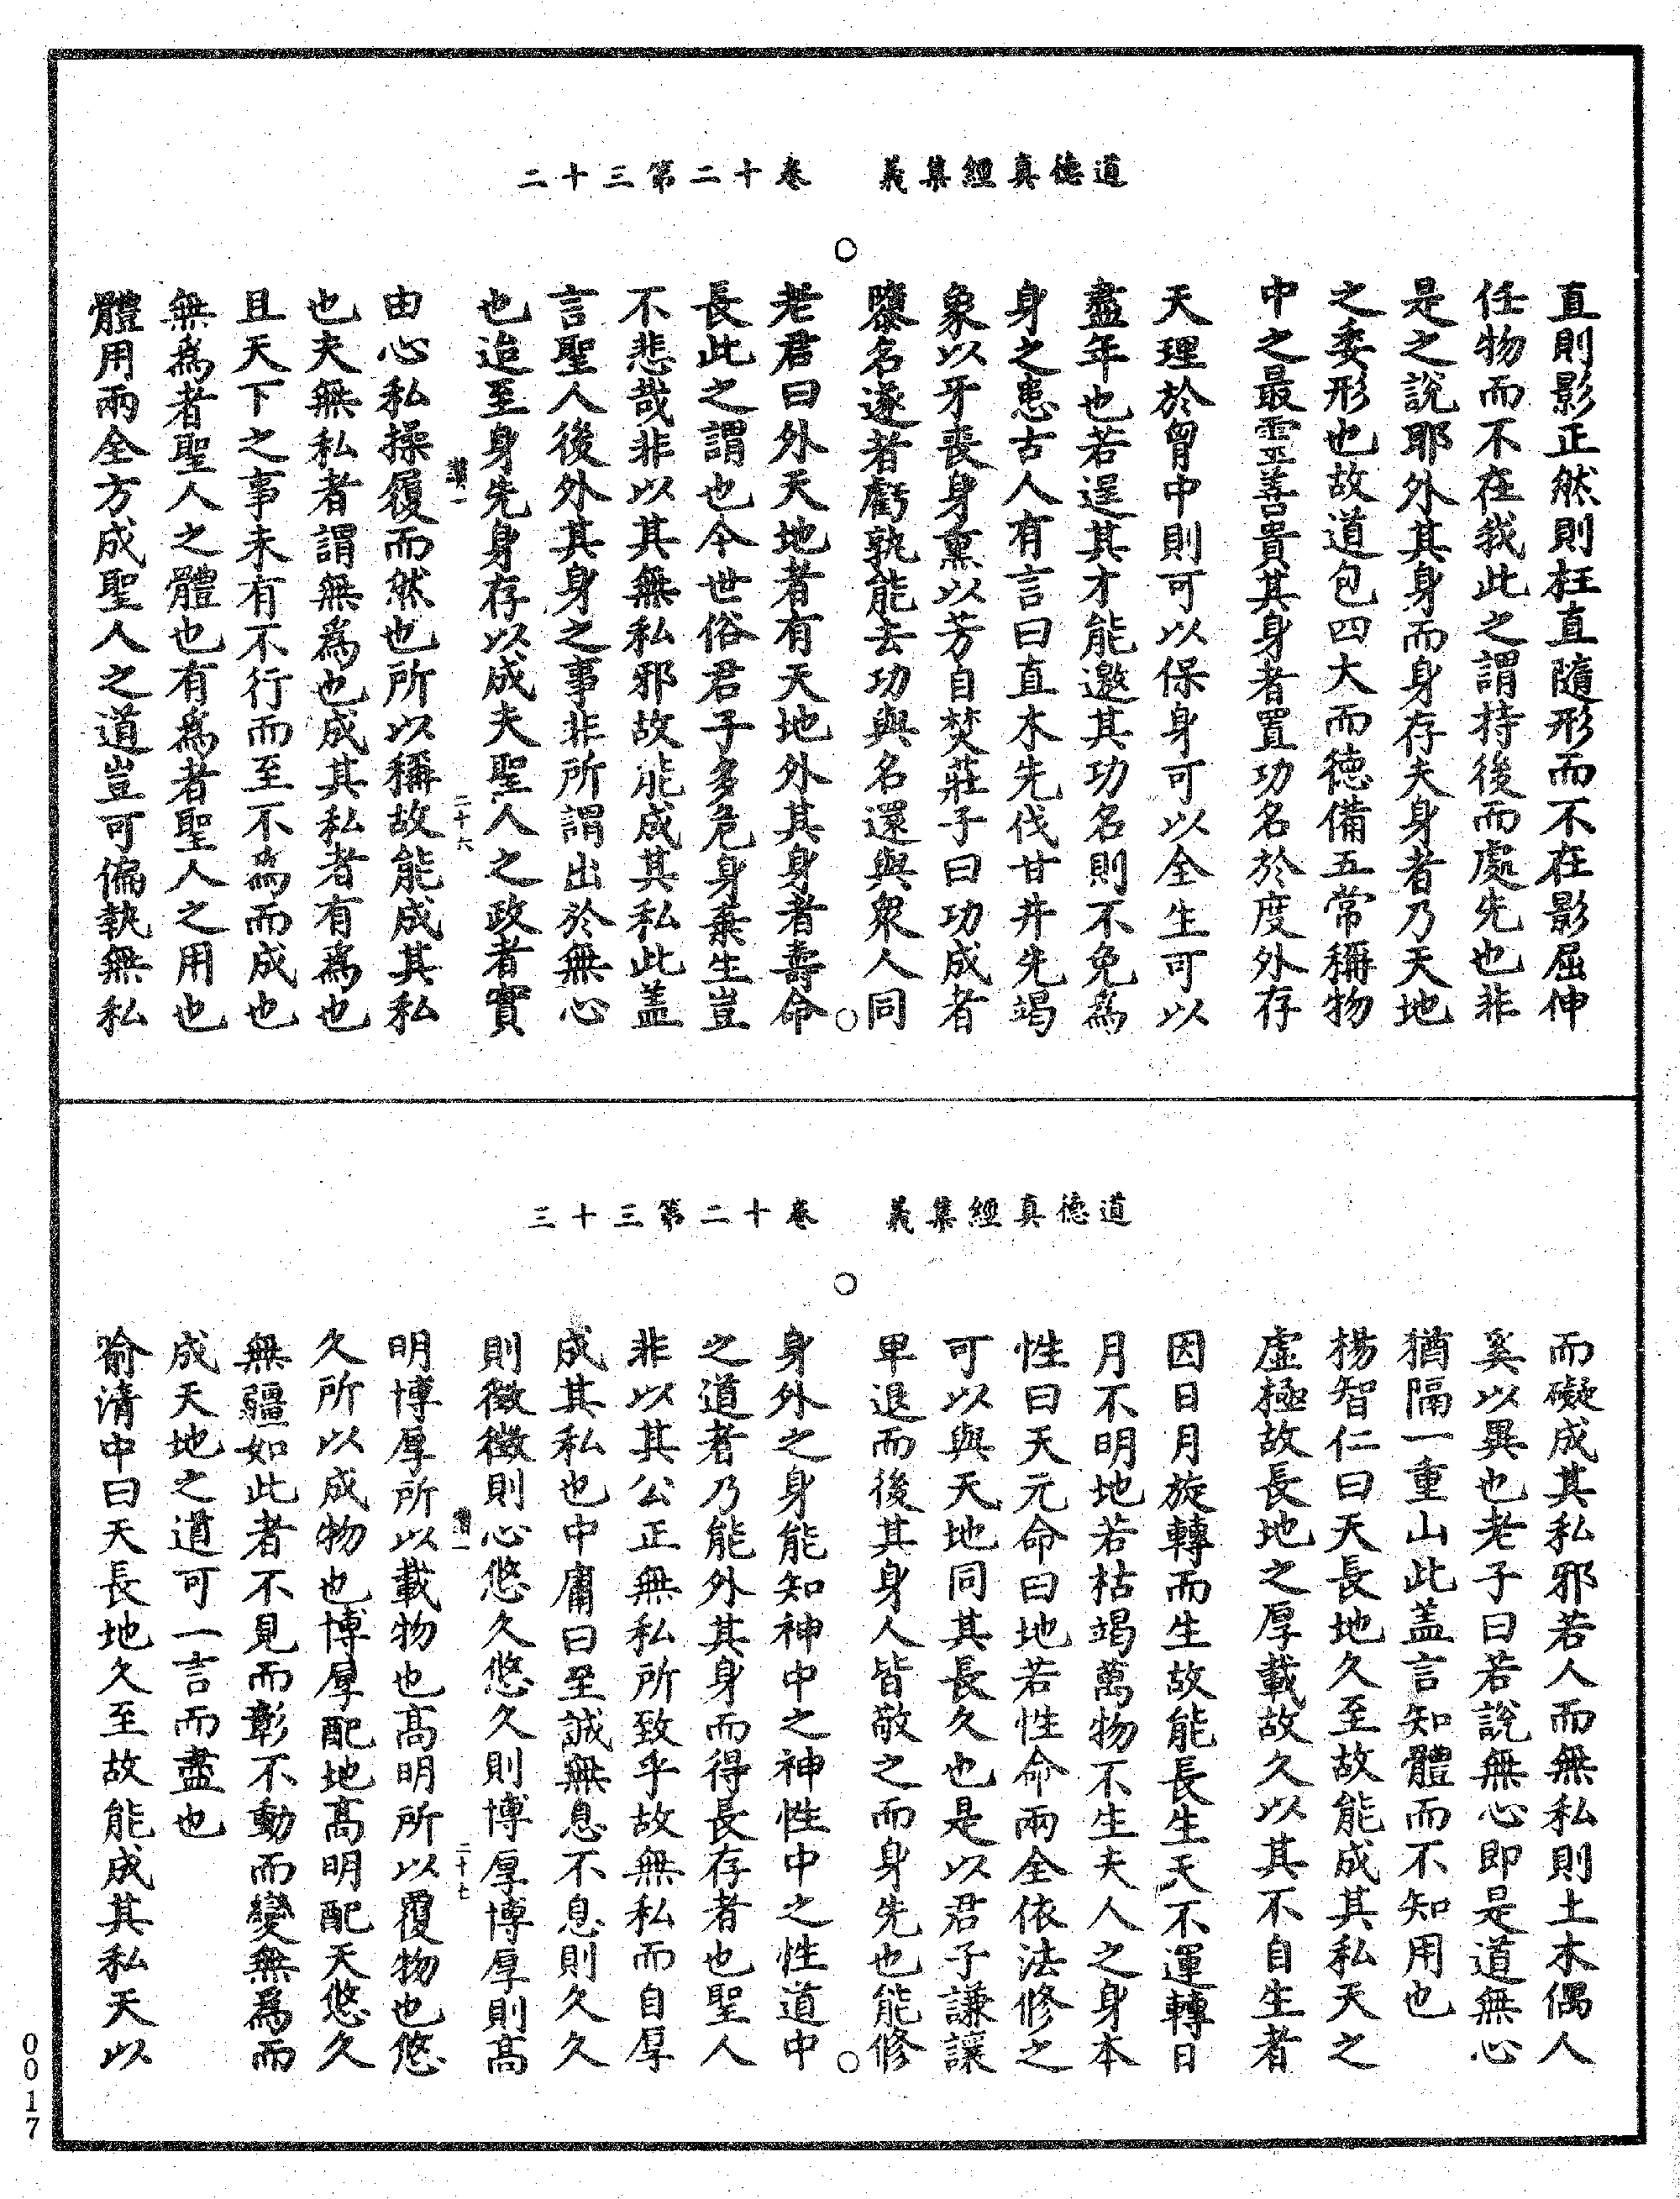 道德真經集義　卷十二第三十二
直則影正然則枉直隨形而不在影屈伸
任物而不在我此之謂持後而處先也非
是之說耶外其身而身存夫身者乃天地
之委形也故道包四大而德備五常稱物
中之最靈善貴其身者置功名於度外存
天理於胷中則可以保身可以全生可以
盡年也若逞其才能邀其功名則不免為
身之患古人有言曰直木先伐甘井先竭
象以牙喪身熏以芳自焚莊子曰功成者
隳名遂者虧孰能去功與名還與眾人同
老君曰外天地者有天地外其身者壽命
長此之謂也今世俗君子多危身棄生豈
不悲哉非以其無私邪故能成其私此盖
言聖人後外其身之事非所謂出於無心
也迨至身先身存以成夫聖人之政者實
二十六
由心私操履而然也所以稱故能成其私
也夫無私者謂無為也成其私者有為也
且天下之事未有不行而至不為而成也
無為者聖人之體也有為者聖人之用也
體用兩全方成聖人之道豈可偏執無私
道德真經集義　卷十二第三十三
而礙成其私邪若人而無私則土木偶人
奚以異也老子曰若說無心即是道無心
猶隔一重山此盖言知體而不知用也
楊智仁曰天長地久至故能成其私天之
虛極故長地之厚載故久以其不自生者
因日月旋轉而生故能長生天不運轉日
月不明地若枯竭萬物不生夫人之身本
性曰天元命曰地若性命兩全依法修之
可以與天地同其長久也是以君子謙讓
卑退而後其身人皆敬之而身先也能修
身外之身能知神中之神性中之性道中
之道者乃能外其身而得長存者也聖人
非以其公正無私所致乎故無私而自厚
成其私也中庸曰至誠無息不息則久久
則徵徵則心悠久悠久則博厚博厚則高
二十七
明博厚所以載物也高明所以覆物也悠
久所以成物也博厚配地高明配天悠久
無疆如此者不見而彰不動而變無為而
成天地之道可一言而盡也
喻清中曰天長地久至故能成其私天以
0017